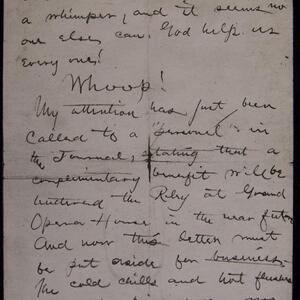 a whimper, and it seems no
one else can. God help us
every one!
Whoop!
My attention has just been
called to a "personal" in
the Journal, stating that a
complimentary benefit will be
tendered the Riley at Grand
Opera-House in the near future
And now this letter must
be put aside for business.
The cold chills and hot flushes